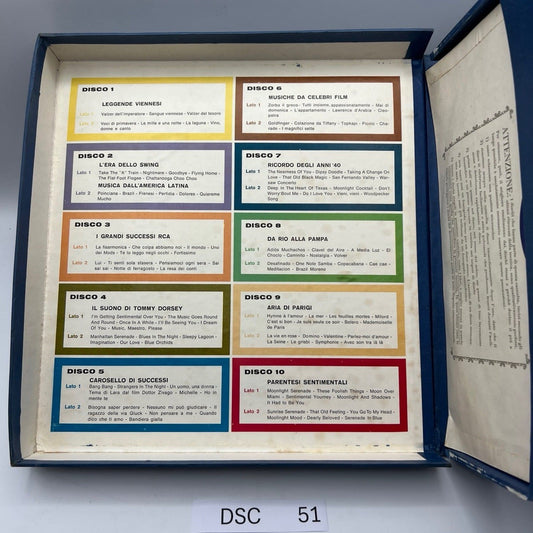 DISCO 1
LEGGENDE VIENNESI
Lato 1 Valzer dell'imperatore - Sangue viennese - Valzer del tesoro
Lato 2 Voci di primavera - La mille e una notte - La laguna - Vino, donne e canto
DISCO 2
L'ERA DELLO SWING
Lato 1 Take The "A" Train - Nightmare - Goodbye - Flying Home - The Flat Foot Floogee - Chattanooga Choo Choo
MUSICA DALL'AMERICA LATINA
Lato 2 Poinciana - Brazil - Frenesi - Perfidia - Dolores - Quiereme Mucho
DISCO 3
I GRANDI SUCCESSI RCA
Lato 1 La fisarmonica - Che colpa abbiamo noi - Il mondo - Uno dei Mods - Te lo leggo negli occhi - Fortissimo
Lato 2 Lui - Ti senti sola stasera - Fatalità - Sei sai sai - Notte di ferragosto - La resa dei conti
DISCO 4
IL SUONO DI TOMMY DORSEY
Lato 1 I'm Getting Sentimental Over You - The Music Goes Round And Round - Once In A While - I'll Be Seeing You - I Dream Of You - Music, Maestro, Please
Lato 2 Manhattan Serenade - Blues In The Night - Sleepy Lagoon - Imagination - Our Love - Blue Orchids
DISCO 5
CAROSELLO DI SUCCESSI
Lato 1 Bang Bang - Strangers In The Night - Un uomo, una donna - Tema di Lara dal film Dottor Zivago - Michelle - Ho in mente te
Lato 2 Bisogna saper perdere - Nessuno mi può giudicare - Il ragazzo della via Gluck - Non pensare a me - Quando dico che ti amo - Bandiera gialla
DISCO 6
MUSICHE DA CELEBRI FILM
Lato 1 Zorba il greco - Tutti insieme appassionatamente - Mai di domenica - L'appartamento - Lawrence d'Arabia - Cleopatra
Lato 2 Goldfinger - Colazione da Tiffany - Topkapi - Picnic - Charade - I magnifici sette
DISCO 7
RICORDO DEGLI ANNI '40
Lato 1 The Nearness Of You - Dipsy Doodle - Taking A Change On Love - That Old Black Magic - San Fernando Valley - Warsaw Concerto
Lato 2 Deep In The Heart Of Texas - Moonlight Cocktail - Don't Worry 'Bout Me - Do I Love You - Vieni, vieni - Woodpecker Song
DISCO 8
DA RIO ALLA PAMPA
Lato 1 Adios Muchachos - Clavel del Aire - A Media Luz - El Choclo - Caminito - Nostalgia - Volver
Lato 2 Desafinado - One Note Samba - Copacabana - Cae cae - Meditacion - Brazil Moreno
DISCO 9
ARIA DI PARIGI
Lato 1 Hymne à l'amour - La mer - Les feuilles mortes - Milord - C'est si bon - Je suis seule ce soir - Bolero - Mademoiselle de Paris
Lato 2 La vie en rose - Domino - Valentine - Parlez-moi d'amour - La Seine - Le grisbi - Symphonie - Avec son tra là là
DISCO 10
PARENTESI SENTIMENTALI
Lato 1 Moonlight Serenade - These Foolish Things - Moon Over Miami - Sentimental Yourney - Moonlight And Shadows - It Had To Be You
Lato 2 Sunrise Serenade - That Old Feeling - You Go To My Head - Moonlight Mood - Dearly Beloved - Serenade In Blue
ATTENZIONE
DSC 51